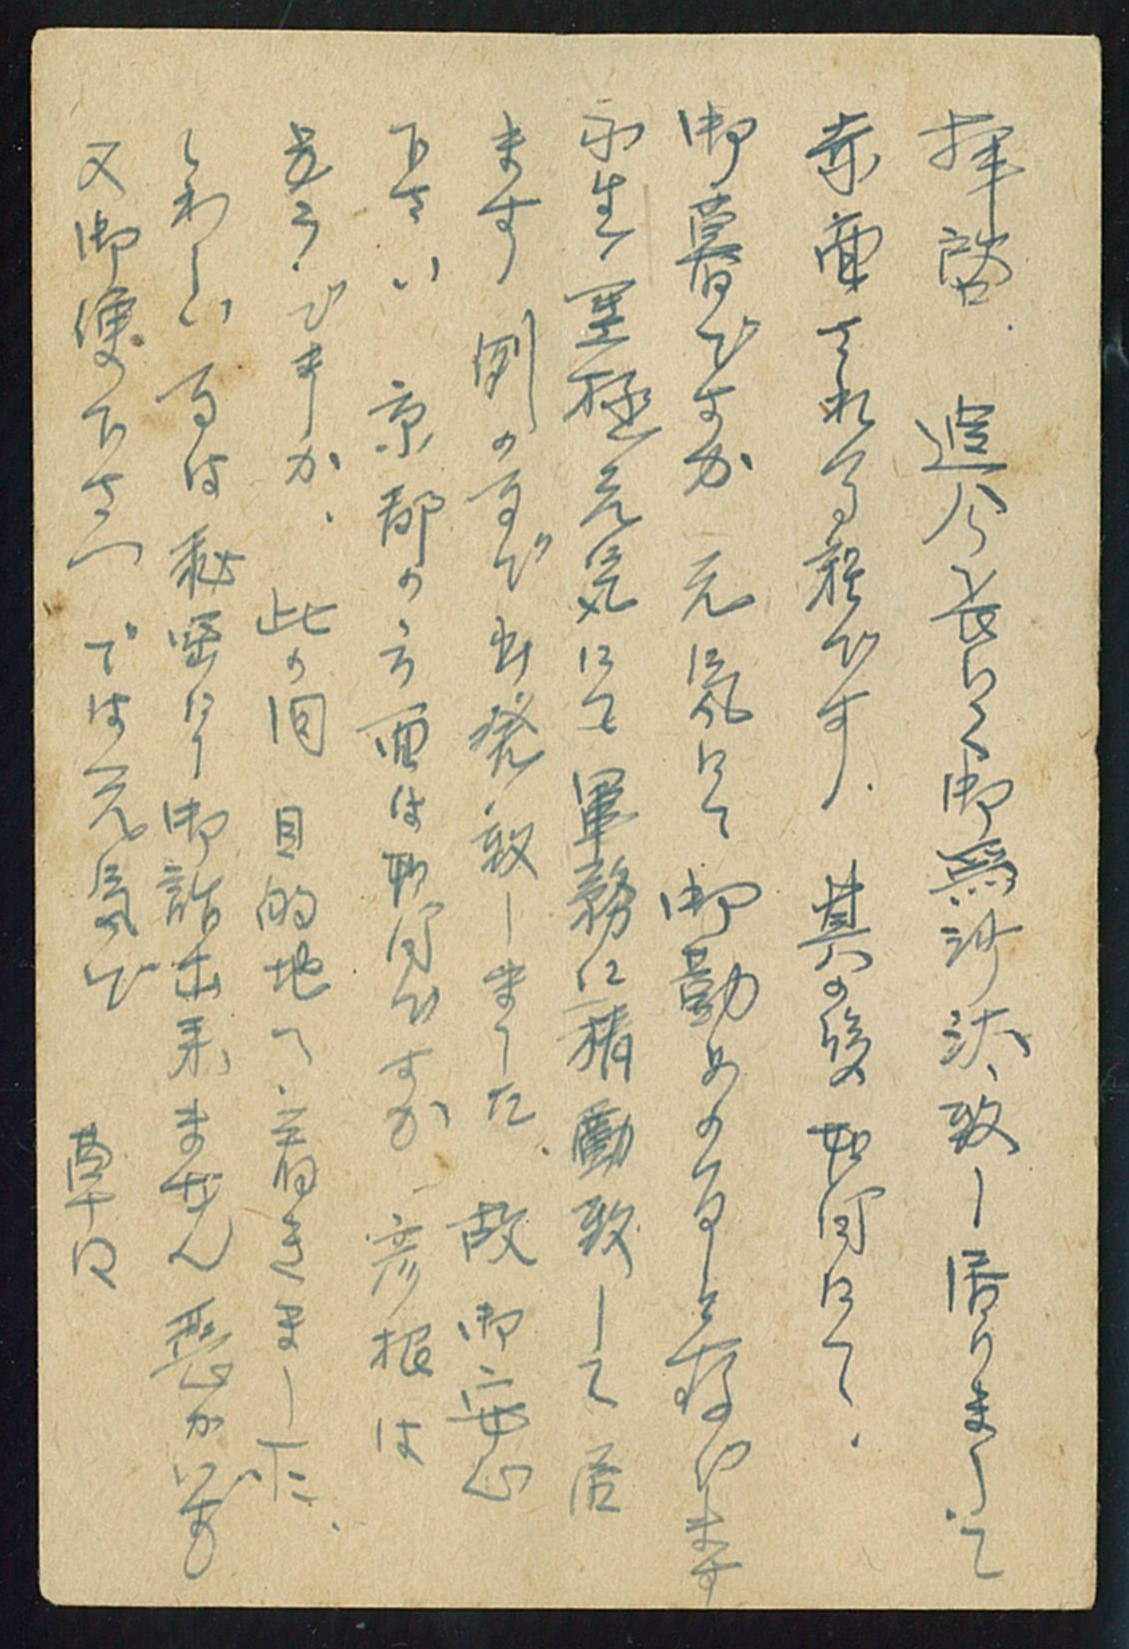 拝啓、追分長らく御無沙汰致し居りまして
赤面される程です、其の後如何にて、
御暮ですか 元気にて御勤めの事と存じます
小生至極元気にて軍務に精励致して居
ます 例の事で出発致しました、故御安心
下さい 京都の方面は如何ですか 彦根は
どうですか、此の間 目的地へ着きました、
くわしい事は秘密にて御話出来ません 悪か
又御便り下さい では元気で 草々